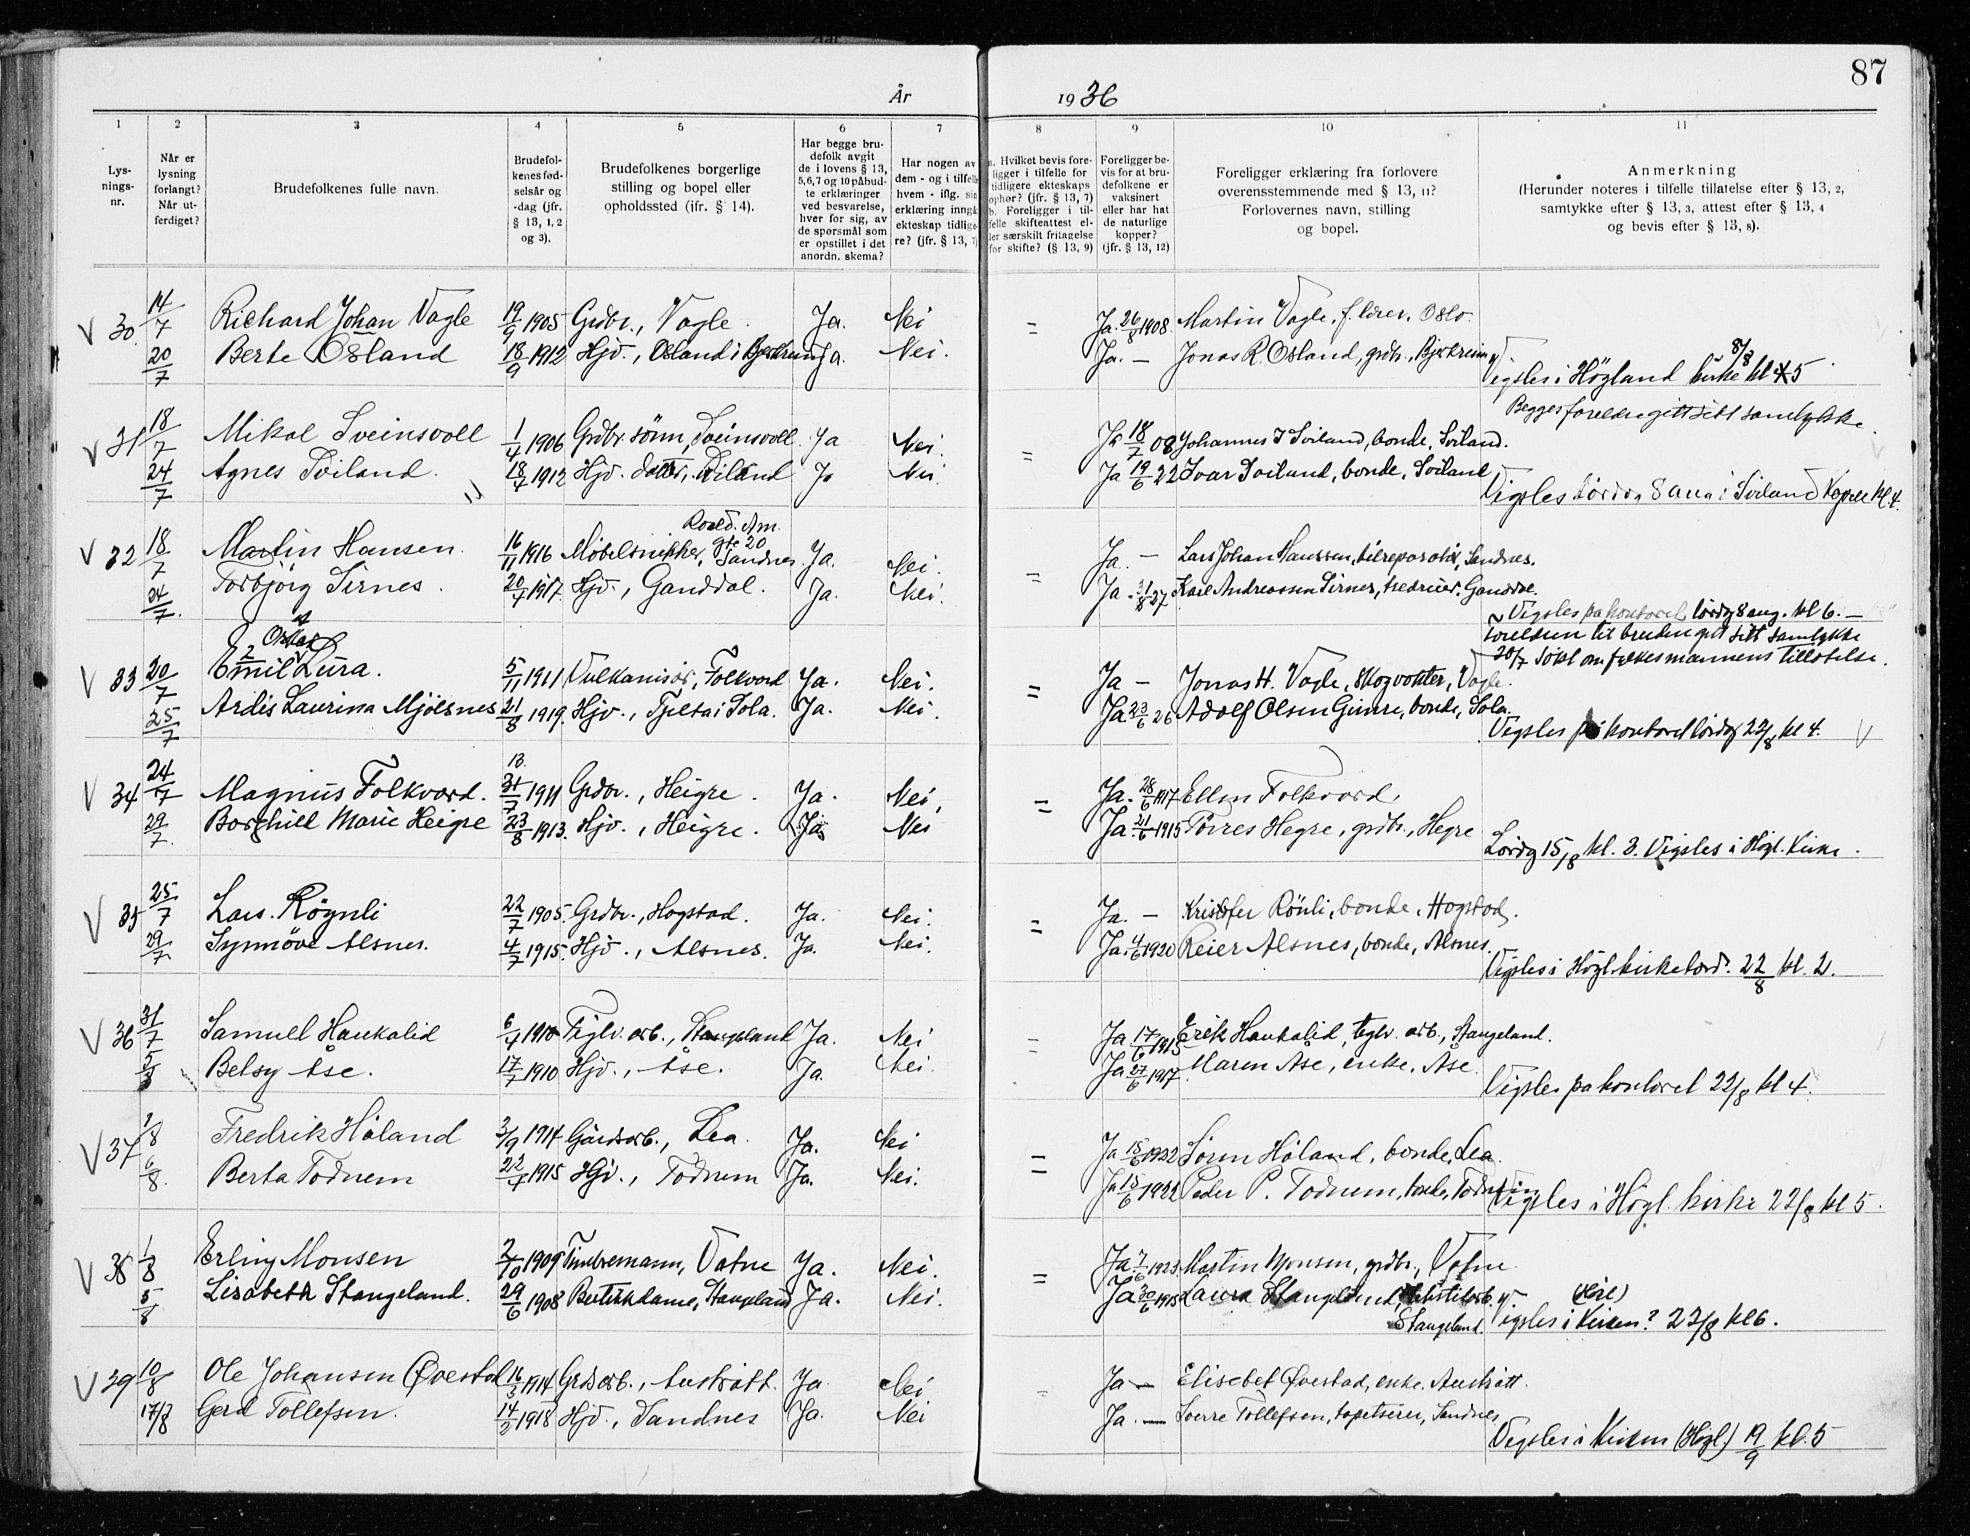 87
År 1936
1 2 3 4 5 6 7 8 9 10 11
Lysningsnr.
Når er lysning forlangt? Når utferdiget?
Brudefolkenes fulle navn.
Brudefolkenes fødselsår og -dag (jfr. § 13, 1, 2 og 3).
Brudefolkenes borgerlige stilling og bopel eller opholdssted (ifr. § 14).
Har begge brudefolk avgit de i lovens § 13, 5,6,7 og 10 påbudte erklæringer ved besvarelse, hver for sig, av de spørsmål som er opstillet i det anordn. skema?
Har nogen av dem - og i tilfelle hvem - iflg. sin erklæring inngå ekteskap tidligere? (jfr. § 13, 7)
Hvilket bevis foreligger i tilfelle for tidligere ekteskaps ophør? (jfr. § 13, 7) b. Foreligger i tilfelle skifteattest eller særskilt fritagelse for skifte? (§ 13, 9)
Foreligger bevis for at brudefolkene er vaksinert eller har hat de naturlige kopper? (jfr. § 13, 12)
Foreligger erklæring fra forlovere overensstemmende med § 13, 11? Forlovernes navn, stilling og bopel.
Anmerkning (Herunder noteres i tilfelle tillatelse efter § 13, 2, samtykke efter § 13, 3, attest efter § 13, 4 og bevis efter § 13, 8).
V 30 14/7 Richard Johan Vagle 19/9 1905 Grdbr., Vagle. Ja. Nei = Ja. 26/8 1908. Martin Vagle, f. Oslo
20/7 Berte Osland 18/9 1912 Hjv., Osland i Bjerkreim Ja. Nei. Ja. — Jonas R. Osland, grdbr., Bjerkreim
Vigsles i Høgland kirke 8/8 kl 5
Begges foreldre gitt sitt samtykke
V 31 18/7 Mikal Sveinsvoll 1/4 1906 Grdbr. sönn, Sveinsvoll. Ja Nei. = Ja 18/7 08 Johannes I Sviland, bonde, Sviland.
24/7 Agnes Sviland. 18/7 1912 Hjv. datter, Sviland Ja Nei. Ja 19/6 22 Ivar Sviland, bonde, Sviland
Vigsles lördag 8 aug i Sviland Kapell kl. 4.
Roald. Am. gt 20
V 32 18/7 Martin Hansen. 16/11 1916 Møbelsnikker, Sandnes Ja. Nei. = Ja. — Lars Johan Hanssen, bilreparatør, Sandnes.
24/7. Torbjörg Sirnes. 20/7 1917 Hjv., Ganddal. Ja. Nei. Ja. 31/8 27 Karl Andreassen Sirnes, Ganddal.
Vigsles på kontoret lördg 8 aug. kl 6. —
Foreldrene til bruden gitt sitt samtykke
20/7 Søkt om fylkesmannens tillatelse.
V 33 20/7 Emil Oskar Lura. 5/11 1911 Vulkanisör, Folkvord Ja. Nei. = Ja — Jonas H. Vagle, skogvokter, Vagle.
25/7 Ardis Laurina Mjölsnes 21/8 1919. Hjv., Tjelta i Sola. Ja. Nei. Ja. 23/6 26. Adolf Olsen Gimre, bonde, Sola.
Vigsles på kontoret lördag 22/8 kl 4. V
13.
V 34 24/7 Magnus Folkvord. 31/7 1911 Grdbr., Heigre. Ja. Nei. = Ja. 28/6 1917 Ellen Folkvord.
29/7. Borghill Marie Heigre 23/8 1913. Hjv., Heigre. Ja Nei Ja. 21/6 1915 Törres Hegre, grdbr., Hegre
Lördg 15/8 kl. 3. Vigsles i Högl. Kirke.
V 35 25/7 Lars Rögnli 22/7 1905. Grdbr., Hogstad. Ja. Nei. = Ja. — Kristofer Rönli, bonde, Hogstad.
29/7 Synnöve Alsnes. 4/7 1915. Hjv., Alsnes. Ja. Nei. Ja. 4/6 1920 Reier Alsnes, bonde, Alsnes.
Vigsles i Högl. kirke lørd. 22/8 kl. 2.
V 36 31/7 Samuel Haukalid 6/4 1910 Teglv. arb., Stangeland Ja. Nei = Ja 17/6 1915 Erik Haukalid, teglv. arb., Stangeland.
5/8 Betsy Åse. 17/7 1910 Hjv., Åse. Ja. Nei. Ja 27/6 1917 Maren Åse, enke, Åse.
Vigsles på kontoret 22/8 kl 4.
V 37 1/8 Fredrik Håland 3/9 1914 Gårdsarb., Lea. Ja. Nei = Ja 15/6 1932 Sören Håland, bonde, Lea.
6/8. Berta Todnem 22/7 1915 Hjv., Todnem Ja. Nei. Ja 15/6 1922 Peder P. Todnem, bonde, Todnem
Vigsles i Högl. kirke 22/8 kl 5.
V 38 1/8 Erling Monsen 2/10 1909 Tömmermann, Vatne Ja. Nei. = Ja. 7/6 1923. Martin Monsen, grdbr., Vatne
5/8 Lisabeth Stangeland. 29/6 1908 Butikkdame, Stangeland Ja. Nei. Ja 30/6 1915 Laura Stangeland, Stangeland.
Vigsles i Kirken? 22/8 kl 6.
V 39 10/8 Ole Johansen Øvestad 16/3 1914 Grdsarb., Austrått. Ja. Nei = Ja — Elisabet Øvestad, enke, Austrått.
17/8 Gerd Tollefsen. 14/2 1918 Hjv., Sandnes Ja. Nei Ja. — Sverre Tollefsen, tapetserer, Sandnes
Vigsles i Kirken (Högl) 19/9 kl. 5